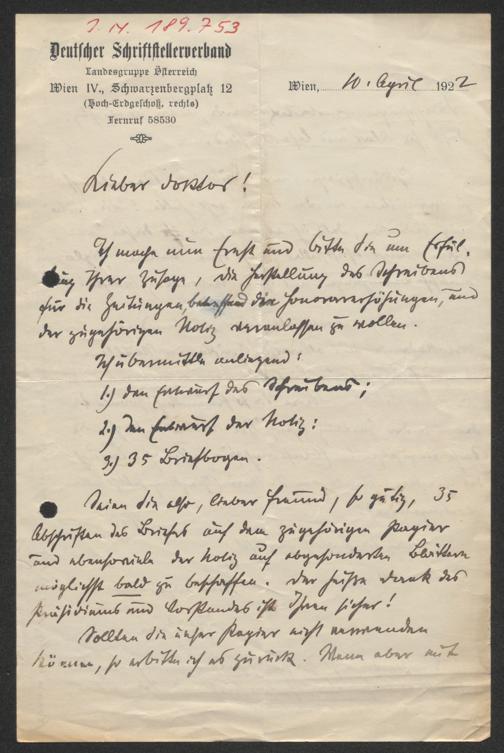 I. N. 189.753
Deutscher Schriftstellerverband
Landesgruppe Österreich
Wien IV., Schwarzenbergplatz 12
(Hoch-Erdgeschoß, rechts)
Fernruf 58530
Wien, 10. April 1922
Lieber Doktor!
Ich mache nun Ernst und bitte Sie um Erfül-
lung Ihrer Zusage, die Herstellung des Schreibens
für die Zeitungen, betreffend die Honorarerhöhungen, und
der zugehörigen Notiz veranlassen zu wollen.
Ich übermittle anliegend:
1.) den Entwurf des Schreibens;
2.) den Entwurf der Notiz:
3.) 35 Briefbogen.
Seien Sie also, lieber Freund, so gütig, 35
Abschriften des Briefes auf dem zugehörigen Papier
und ebensoviele der Notiz auf abgesonderten Blättern
möglichst bald zu beschaffen. Der heiße Dank des
Präsidiums und Vorstandes ist Ihnen sicher!
Sollten Sie unser Papier nicht verwenden
können, so erbitte ich es zurück. Wenn aber mit